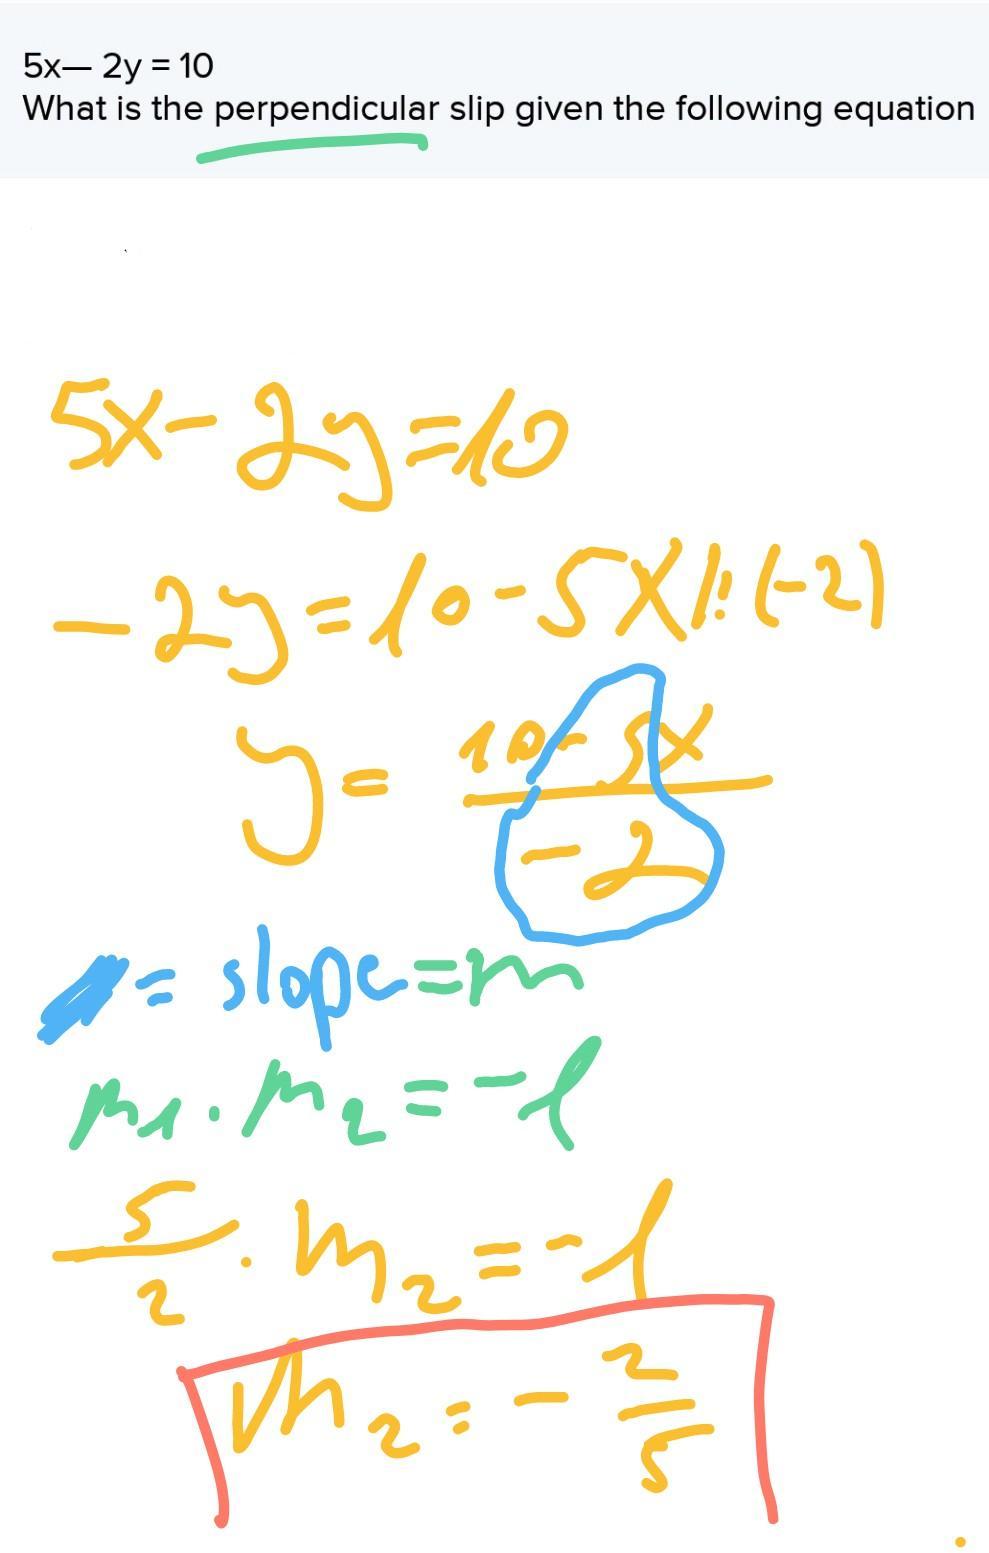 5x— 2y = 10
What is the perpendicular slip given the following equation
5x-2y=10
-2y=10-5x/:(-2)
y=
10-5x
-2
= slope=m
m1·m2=-1
5
2
·m2=-1
m2=-
2
5